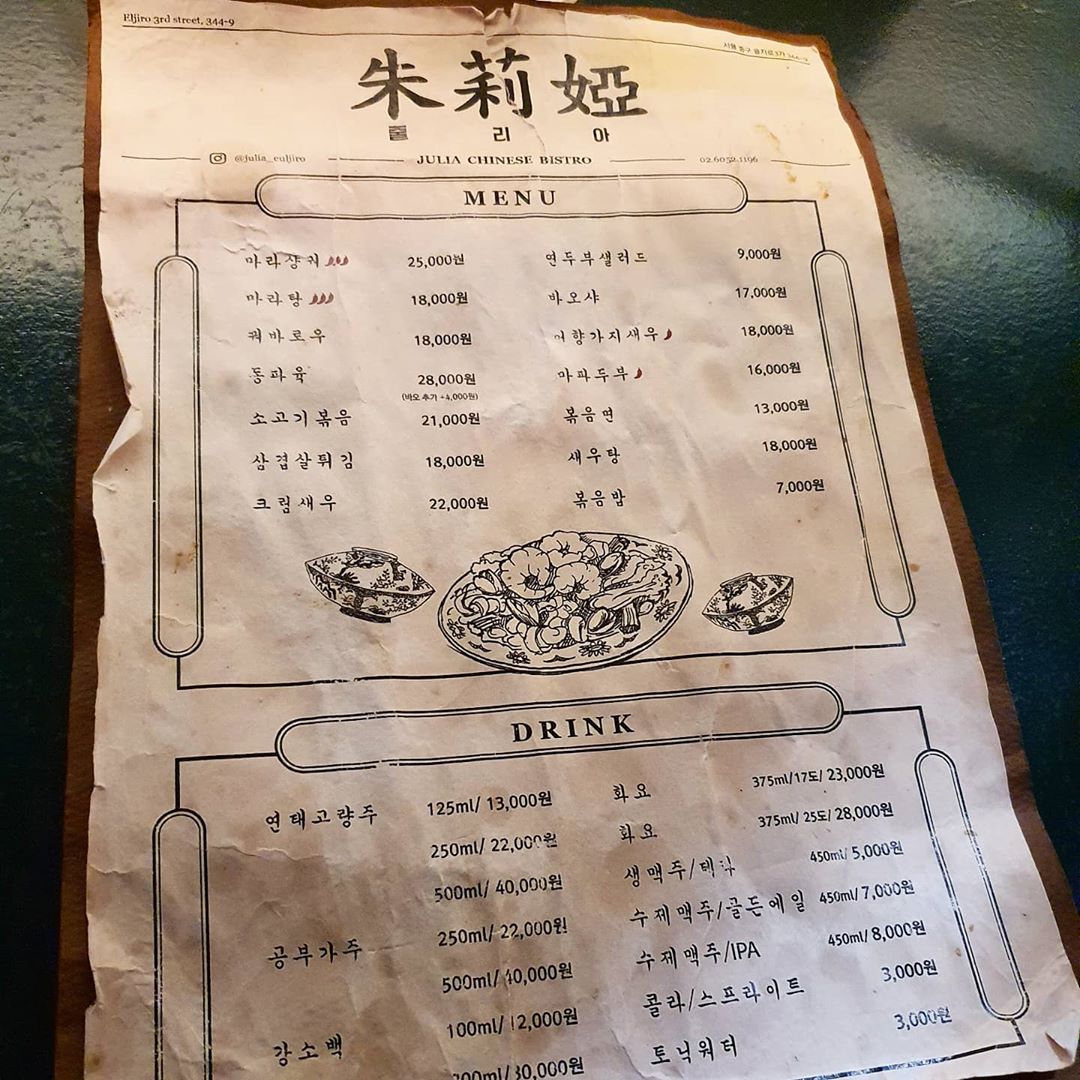 Eljiro 3rd street, 344-9
서울 중구 을지로3가 344-9
朱莉婭
줄리아
@julia_euljiro
JULIA CHINESE BISTRO
02.6052.1196
MENU
마라샹궈 25,000원
마라탕 18,000원
꿔바로우 18,000원
동파육 28,000원
(바오 추가 +4,000원)
소고기볶음 21,000원
삼겹살튀김 18,000원
크림새우 22,000원
연두부샐러드 9,000원
바오샤 17,000원
어향가지새우 18,000원
마파두부 16,000원
볶음면 13,000원
새우탕 18,000원
볶음밥 7,000원
DRINK
연태고량주 125ml/ 13,000원
250ml/ 22,000원
500ml/ 40,000원
공부가주 250ml/ 22,000원
500ml/ 40,000원
강소백 100ml/ 12,000원
화요 375ml/17도/ 23,000원
화요 375ml/ 25도/ 28,000원
생맥주/테라 450ml/ 5,000원
수제맥주/골든에일 450ml/ 7,000원
수제맥주/IPA 450ml/ 8,000원
콜라/스프라이트 3,000원
토닉워터 3,000원